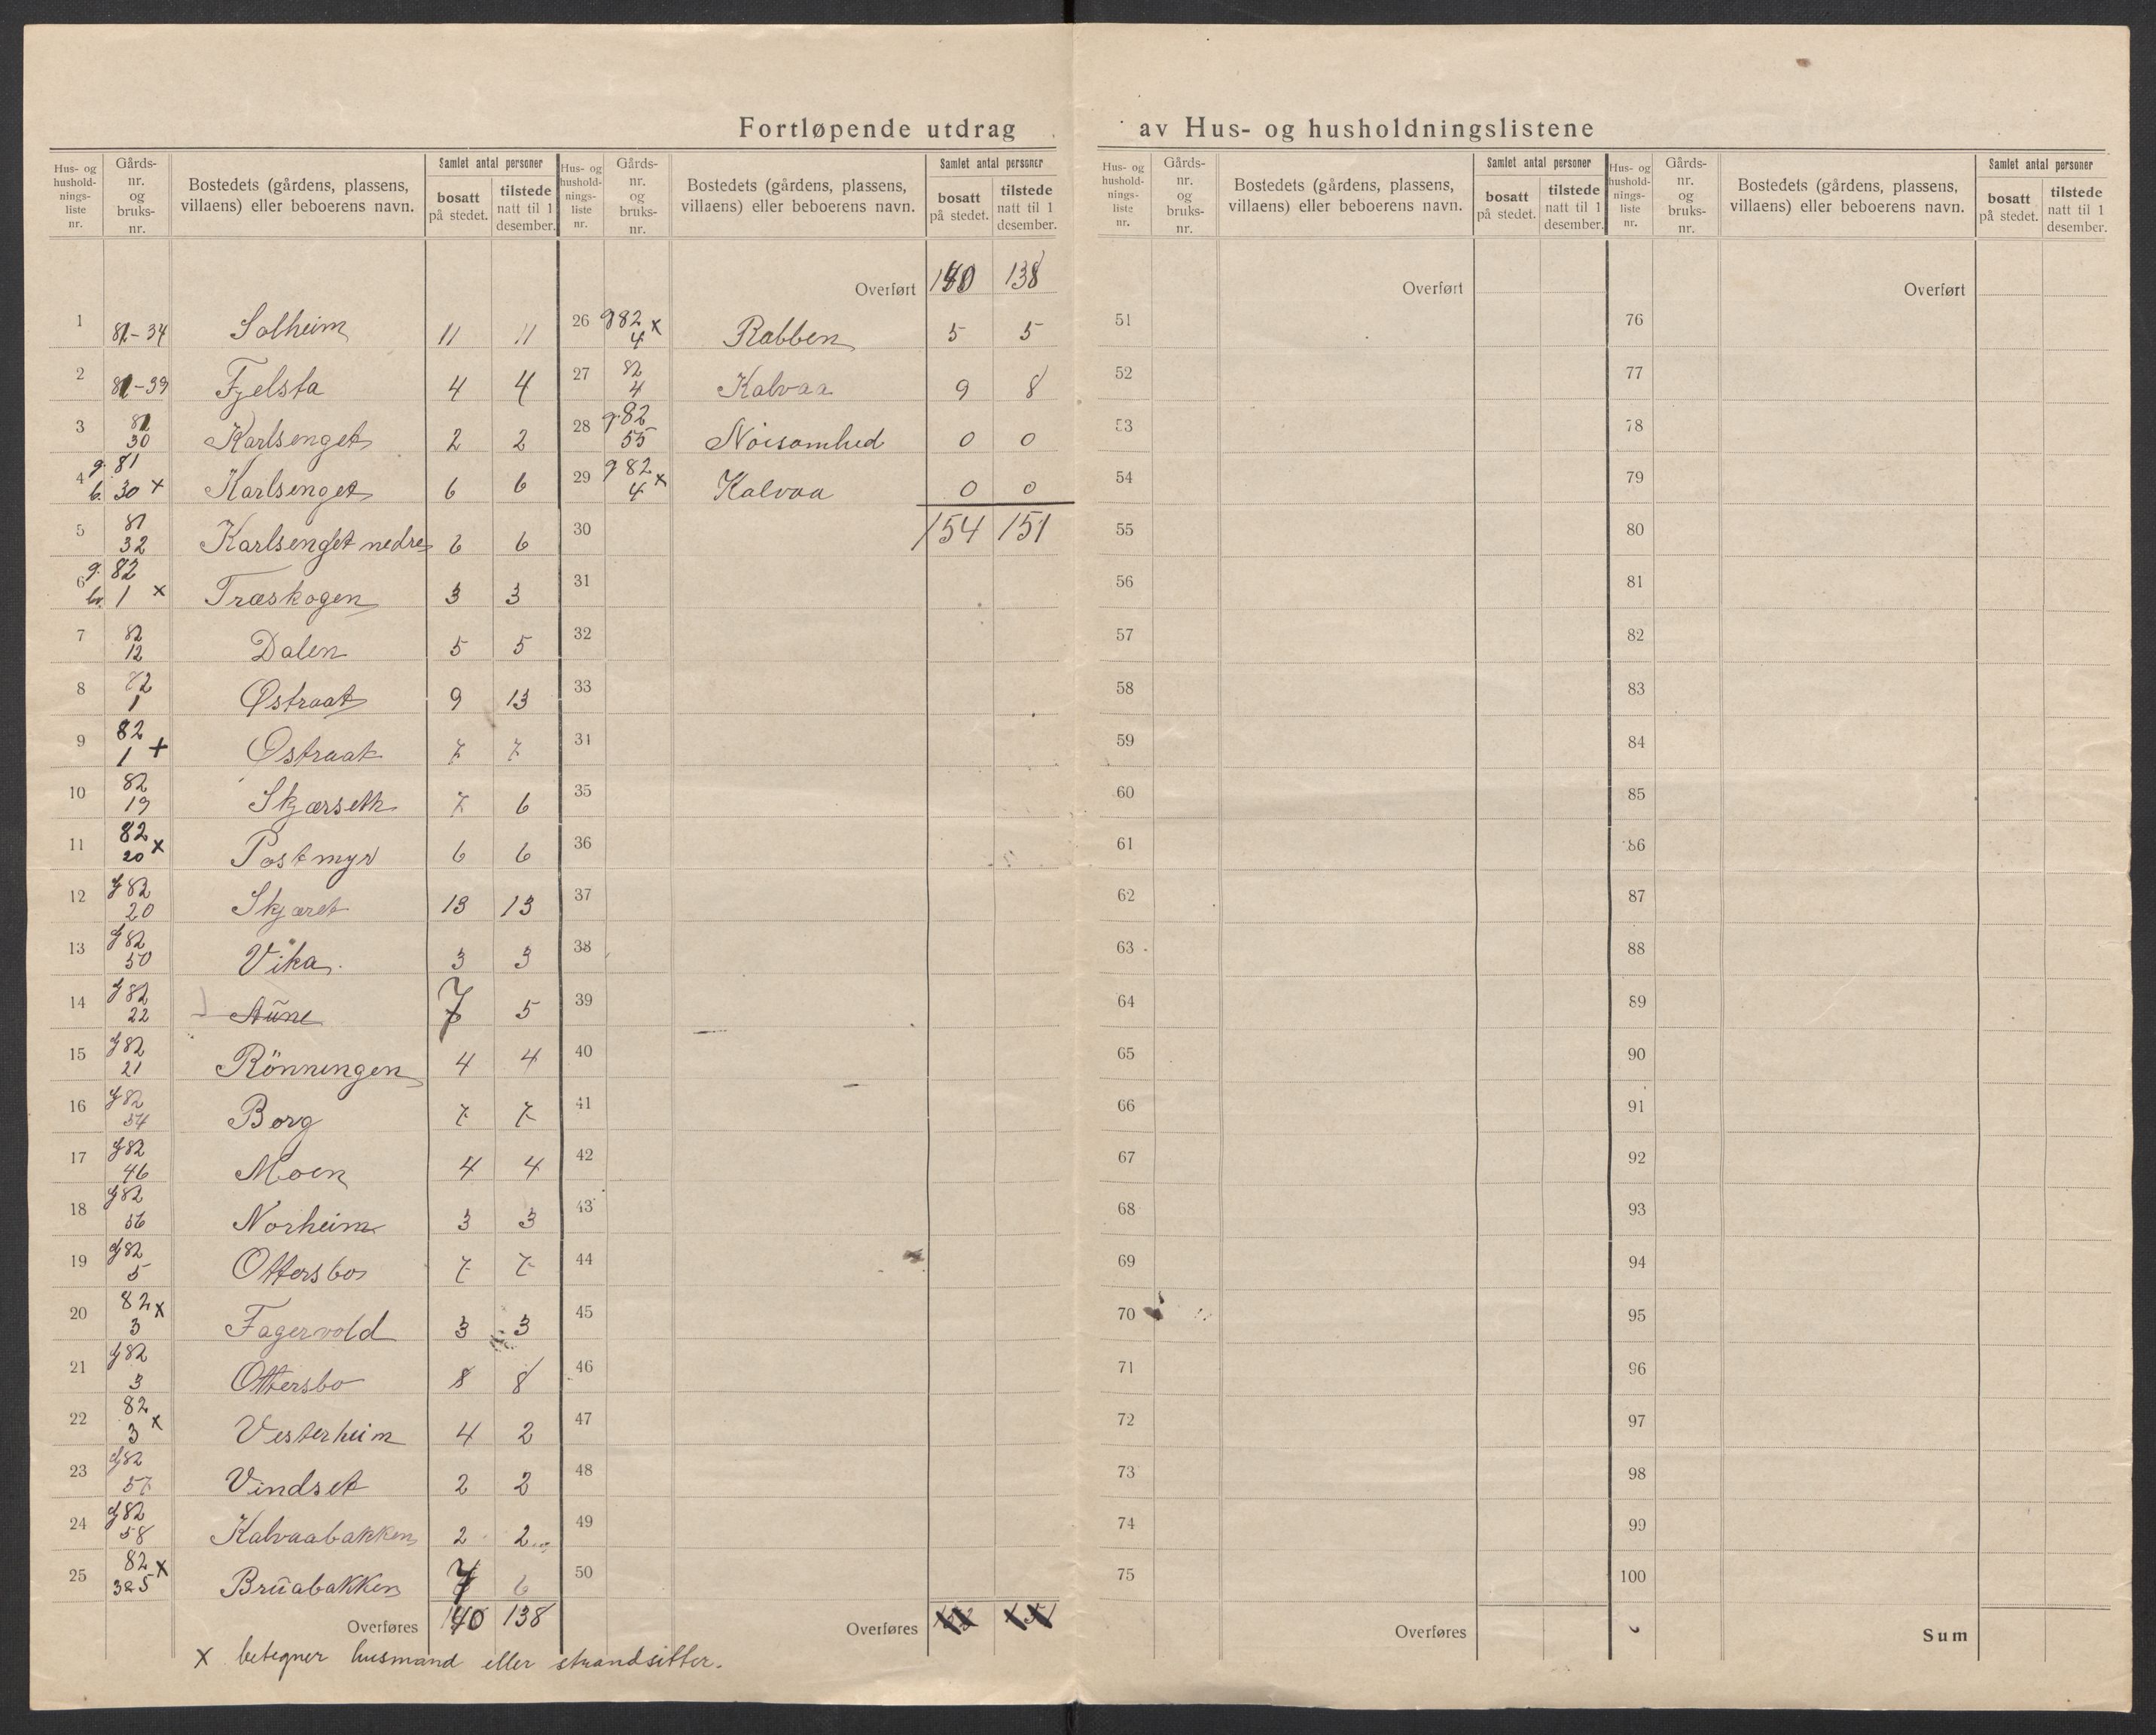 Fortløpende utdrag av Hus- og husholdningslistene
Hus- og husholdnings-liste nr. | Gårds-nr. og bruks-nr. | Bostedets (gårdens, plassens, villaens) eller beboerens navn. | Samlet antal personer | bosatt på stedet. | tilstede natt til 1 desember.
1 81-34 Solheim 11 11
2 81-39 Fjelsta 4 4
3 81 30 Karlsenget 2 2
4 g. 81 b. 30 x Karlsenget 6 6
5 81 32 Karlsenget nedre 6 6
6 g. 82 br. 1 x Træskogen 3 3
7 82 12 Dalen 5 5
8 82 1 Østraat 9 13
9 82 1 + Østraat 7 7
10 82 19 Skjærseth 7 6
11 82 20 x Postmyr 6 6
12 g 82 20 Skjæret 13 13
13 g 82 50 Vika. 3 3
14 g 82 22 Aune 7 5
15 g 82 21 Rönningen 4 4
16 g 82 54 Borg 7 7
17 g 82 46 Moen 4 4
18 g 82 56 Norheim 3 3
19 g 82 5 Ottersbo 7 7
20 82 x 3 Fagervold 3 3
21 g 82 3 Ottersbo 8 8
22 82 3 x Vesterheim 4 2
23 g 82 57 Vindset 2 2
24 g 82 58 Kalvaabakken 2 2
25 82 x Bruabakken 7 6
Overføres 140 138
x betegner husmand eller strandsitter.
Hus- og husholdnings-liste nr. | Gårds-nr. og bruks-nr. | Bostedets (gårdens, plassens, villaens) eller beboerens navn. | Samlet antal personer | bosatt på stedet. | tilstede natt til 1 desember.
Overført 140 138
26 g 82 4 x Rabben 5 5
27 82 4 Kalvaa 9 8
28 g. 82 55 Nöisomhed 0 0
29 g 82 4 x Kalvaa 0 0
30 154 151
31
32
33
31
35
36
37
38
39
40
41
42
43
44
45
46
47
48
49
50
Overføres
Hus- og husholdnings-liste nr. | Gårds-nr. og bruks-nr. | Bostedets (gårdens, plassens, villaens) eller beboerens navn. | Samlet antal personer | bosatt på stedet. | tilstede natt til 1 desember.
Overført
51
52
53
54
55
56
57
58
59
60
61
62
63
64
65
66
67
68
69
70
71
72
73
74
75
Overføres
Hus- og husholdnings-liste nr. | Gårds-nr. og bruks-nr. | Bostedets (gårdens, plassens, villaens) eller beboerens navn. | Samlet antal personer | bosatt på stedet. | tilstede natt til 1 desember.
Overført
76
77
78
79
80
81
82
83
84
85
86
87
88
89
90
91
92
93
94
95
96
97
98
99
100
Sum